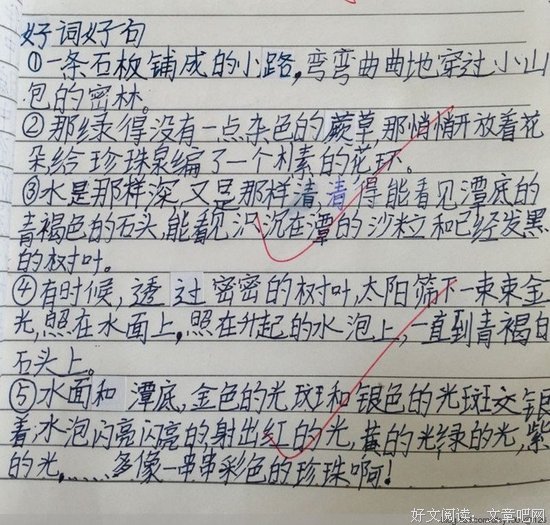 好词好句
①一条石板铺成的小路,弯弯曲曲地穿过小山
包的密林。
②那绿得没有一点杂色的蕨草那悄悄开放着花
朵,给珍珠泉编了一个朴素的花环。
③水是那样深,又是那样清,清得能看见潭底的
青褐色的石头,能看见沉在潭的沙粒和已经发黑
的树叶。
④有时候,透过密密的树叶,太阳筛下一束束金
光,照在水面上,照在升起的水泡上,一直到青褐色
石头上。
⑤水面和潭底,金色的光斑和银色的光斑交错
着,水泡闪亮闪亮的射出红的光,黄的光,绿的光,紫
的光,……多像一串串彩色的珍珠啊!
好文阅读:文章吧网